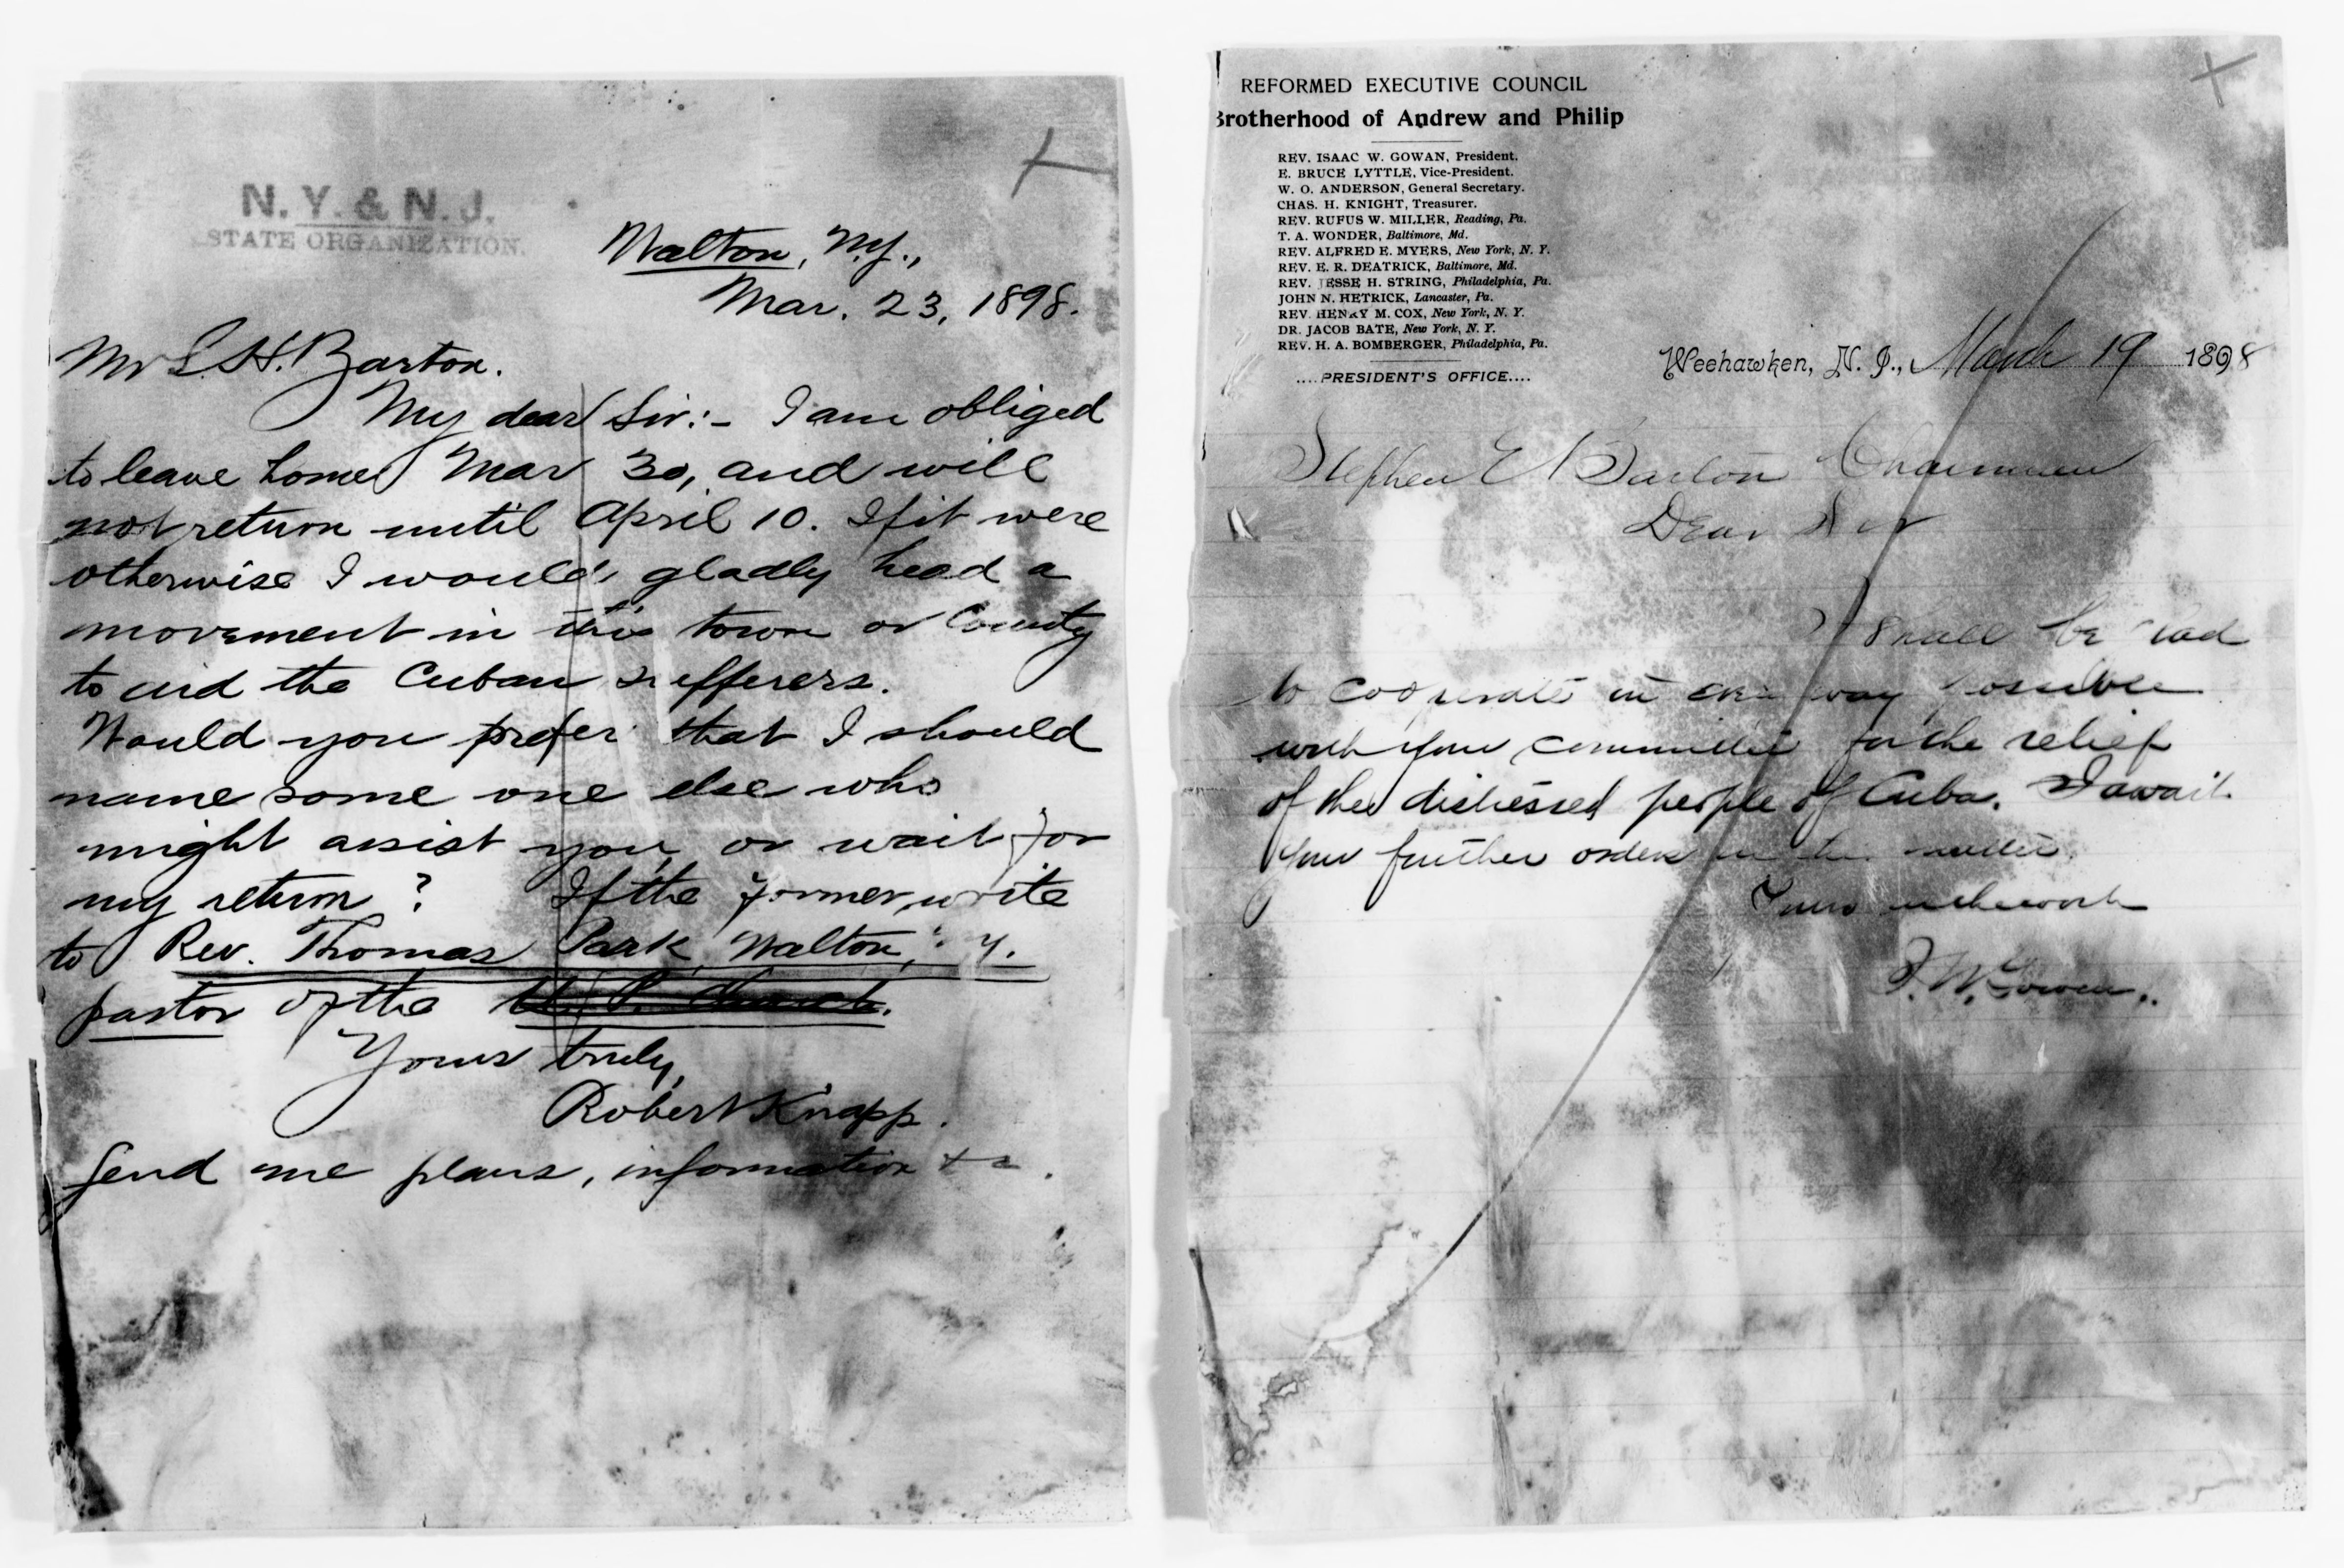 N. Y. & N. J.
STATE ORGANIZATION.
Walton, N.Y.,
Mar. 23, 1898.
Mr S. H. Barton.
My dear Sir:- I am obliged
to leave home Mar 30, and will
not return until April 10. If it were
otherwise I would gladly head a
movement in this town or County
to aid the Cuban sufferers.
Would you prefer that I should
name some one else who
might assist you, or wait for
my return? If the former, write
to Rev. Thomas Park, Walton, Y.
pastor of the U. P. Church.
Yours truly,
Robert Knapp.
Send me plans, information &c.
REFORMED EXECUTIVE COUNCIL
Brotherhood of Andrew and Philip
REV. ISAAC W. GOWAN, President.
E. BRUCE LYTTLE, Vice-President.
W. O. ANDERSON, General Secretary.
CHAS. H. KNIGHT, Treasurer.
REV. RUFUS W. MILLER, Reading, Pa.
T. A. WONDER, Baltimore, Md.
REV. ALFRED E. MYERS, New York, N. Y.
REV. E. R. DEATRICK, Baltimore, Md.
REV. JESSE H. STRING, Philadelphia, Pa.
JOHN N. HETRICK, Lancaster, Pa.
REV. HENRY M. COX, New York, N. Y.
DR. JACOB BATE, New York, N. Y.
REV. H. A. BOMBERGER, Philadelphia, Pa.
....PRESIDENT'S OFFICE....
Weehawken, N. J., March 19 1898
Stephen E Barton Chairman
Dear Sir
I shall be glad
to cooperate in every way possible
with your committee for the relief
of the distressed people of Cuba. I await
your further orders in the matter.
Yours in the work
I. W. Gowen.